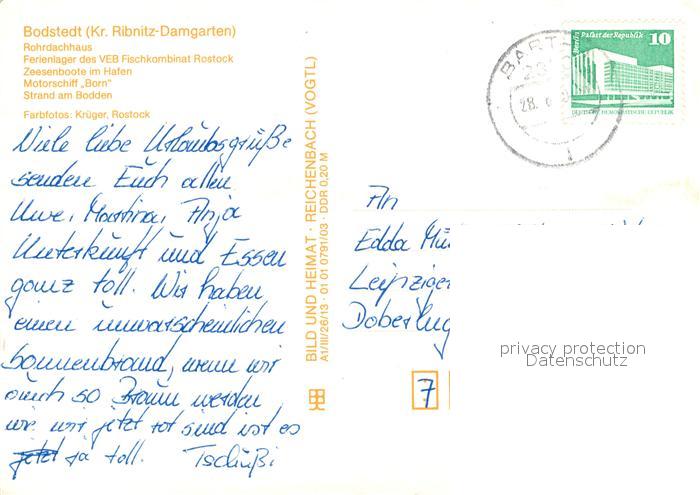 Bodstedt (Kr. Ribnitz-Damgarten)
Rohrdachhaus
Ferienlager des VEB Fischkombinat Rostock
Zeesenboote im Hafen
Motorschiff „Born"
Strand am Bodden
Farbfotos: Krüger, Rostock
Viele liebe Urlaubsgrüße
senden Euch allen
Uwe, Martina, Anja
Unterkunft und Essen
ganz toll. Wir haben
einen unwarscheinlichen
Sonnenbrand, wenn wir
auch so Braun werden
wie wir jetzt rot sind ist es
jetzt ja toll. Tschüßi
BILD UND HEIMAT · REICHENBACH (VOGTL)
A1/III/26/13 · 01 01 0791/03 · DDR 0,20 M
BART
28. 6
Berlin Palast der Republik 10
DEUTSCHE DEMOKRATISCHE REPUBLIK
An
Edda Mü
Leipziger
Doberlug
7
privacy protection
Datenschutz